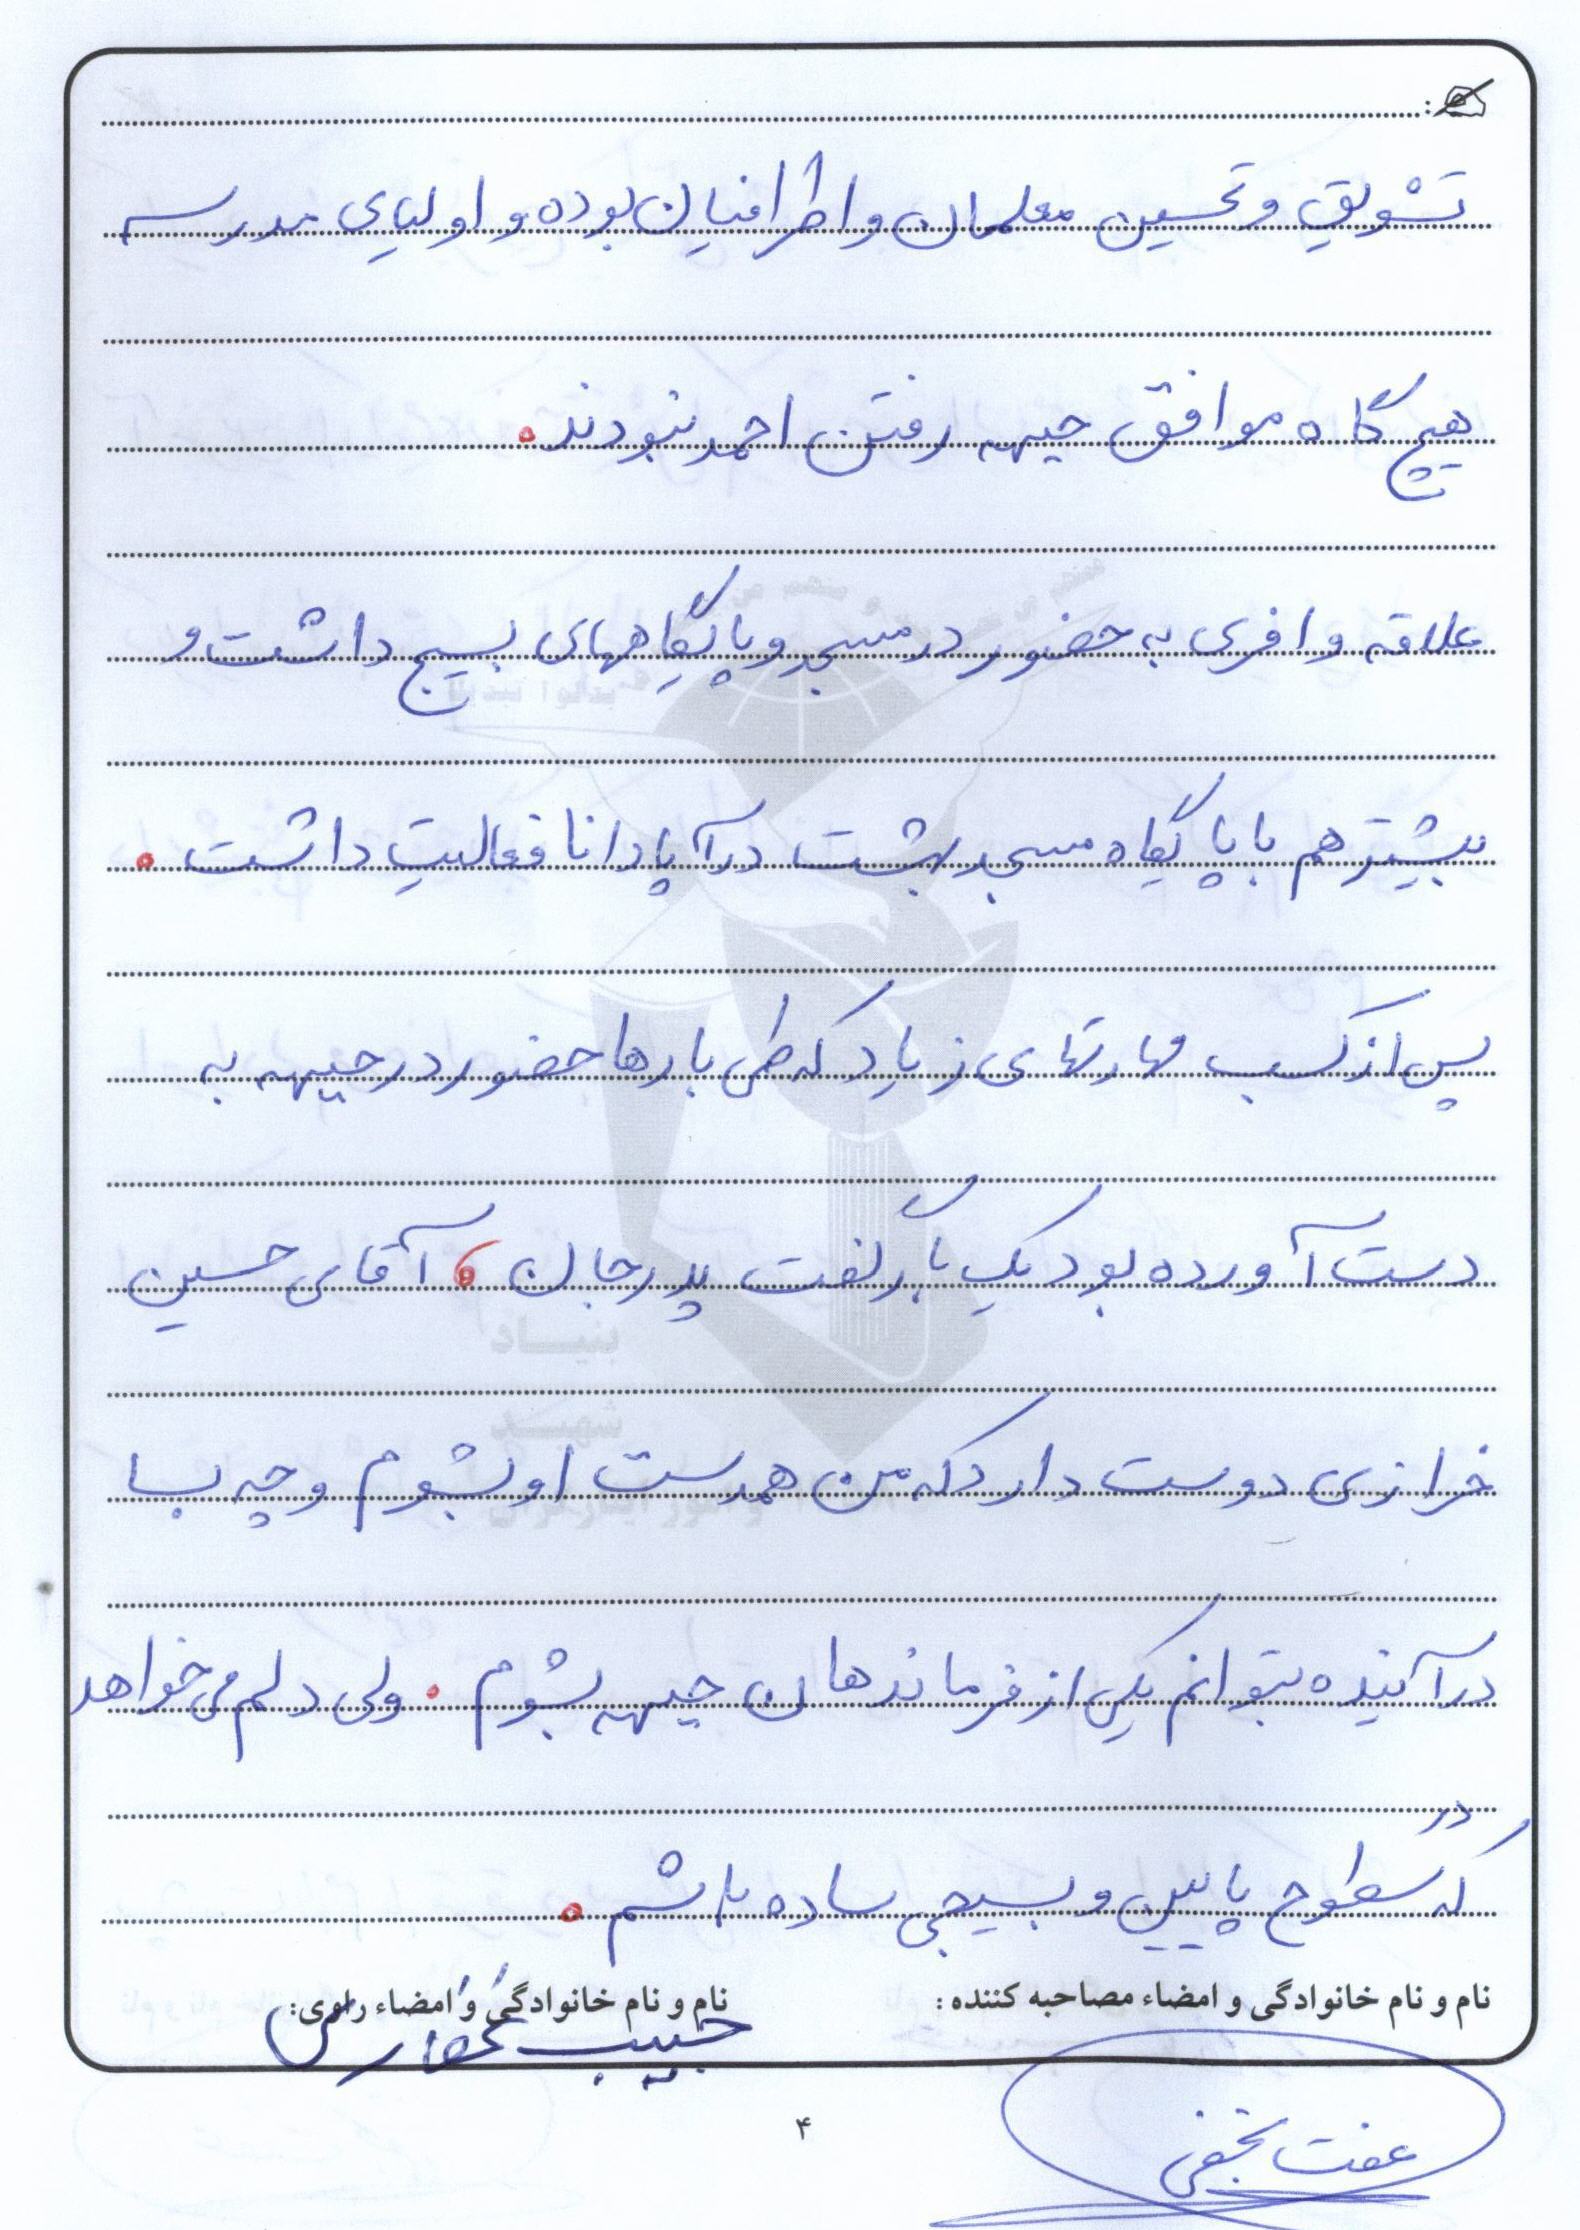 تشویق و تحسین معلمان و اطرافیان بوده و اولیای مدرسه
هیچ گاه موافق جبهه رفتن احمد نبودند.
علاقه وافری به حضور در مسجد و پایگاههای بسیج داشت و
بیشتر هم با پایگاه مسجد بهشت در آپادانا فعالیت داشت.
پس از کسب مهارتهای زیاد که طی بارها حضور در جبهه به
دست آورده بود یک بار گفت پدر جان، آقای حسین
خرازی دوست دارد که من همدست او بشوم و چه بسا
در آینده بتوانم یکی از فرماندهان جبهه بشوم. ولی دلم می خواهد
که در سطوح پایین و بسیجی ساده باشم.
نام و نام خانوادگی و امضاء مصاحبه کننده:
نام و نام خانوادگی و امضاء راوی:
حبیب
عفت نجفی
۴
بنیاد
شهید
و امور ایثارگران